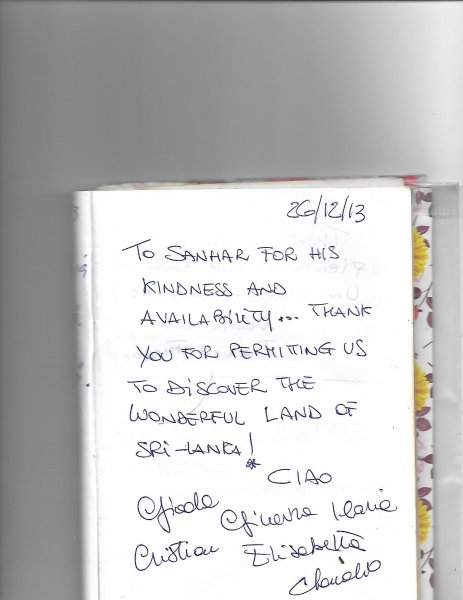 26/12/13
TO SANHAR FOR HIS
KINDNESS AND
AVAILABILITY... THANK
YOU FOR PERMITING US
TO DISCOVER THE
WONDERFUL LAND OF
SRI-LANKA!
* CIAO
Giada Ginevra Ilaria
Cristian Elisabetta
Claudio